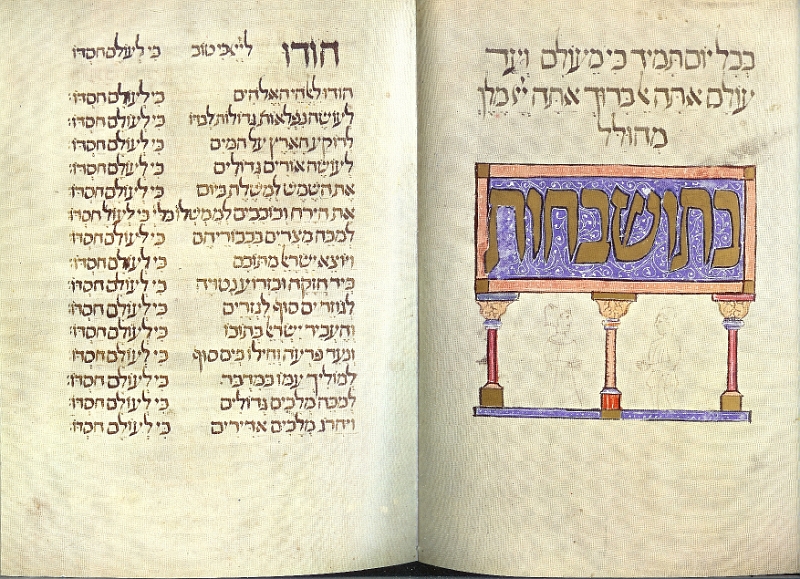 בכל יום תמיד כי מעולם ועד
עולם אתה א ברוך אתה יי מלך
מהולל
בתושבחות
הודו ליי כי טוב כי לעולם חסדו
הודו לאלהי האלהים כי לעולם חסדו:
לעושה נפלאות גדולות לבדו כי לעולם חסדו:
לרוקע הארץ על המים כי לעולם חסדו:
לעושה אורים גדולים כי לעולם חסדו:
את השמש לממשלת ביום כי לעולם חסדו:
את הירח וכוכבים לממשלו בלי כי לעולם חסדו
למכה מצרים בבכוריהם כי לעולם חסדו:
ויוצא ישראל מתוכם כי לעולם חסדו:
ביד חזקה ובזרוע נטויה כי לעולם חסדו:
לגוזר ים סוף לגזרים כי לעולם חסדו:
והעביר ישראל בתוכו כי לעולם חסדו:
ונער פרעה וחילו בים סוף כי לעולם חסדו:
למוליך עמו במדבר כי לעולם חסדו:
למכה מלכים גדולים כי לעולם חסדו:
ויהרג מלכים אדירים כי לעולם חסדו: